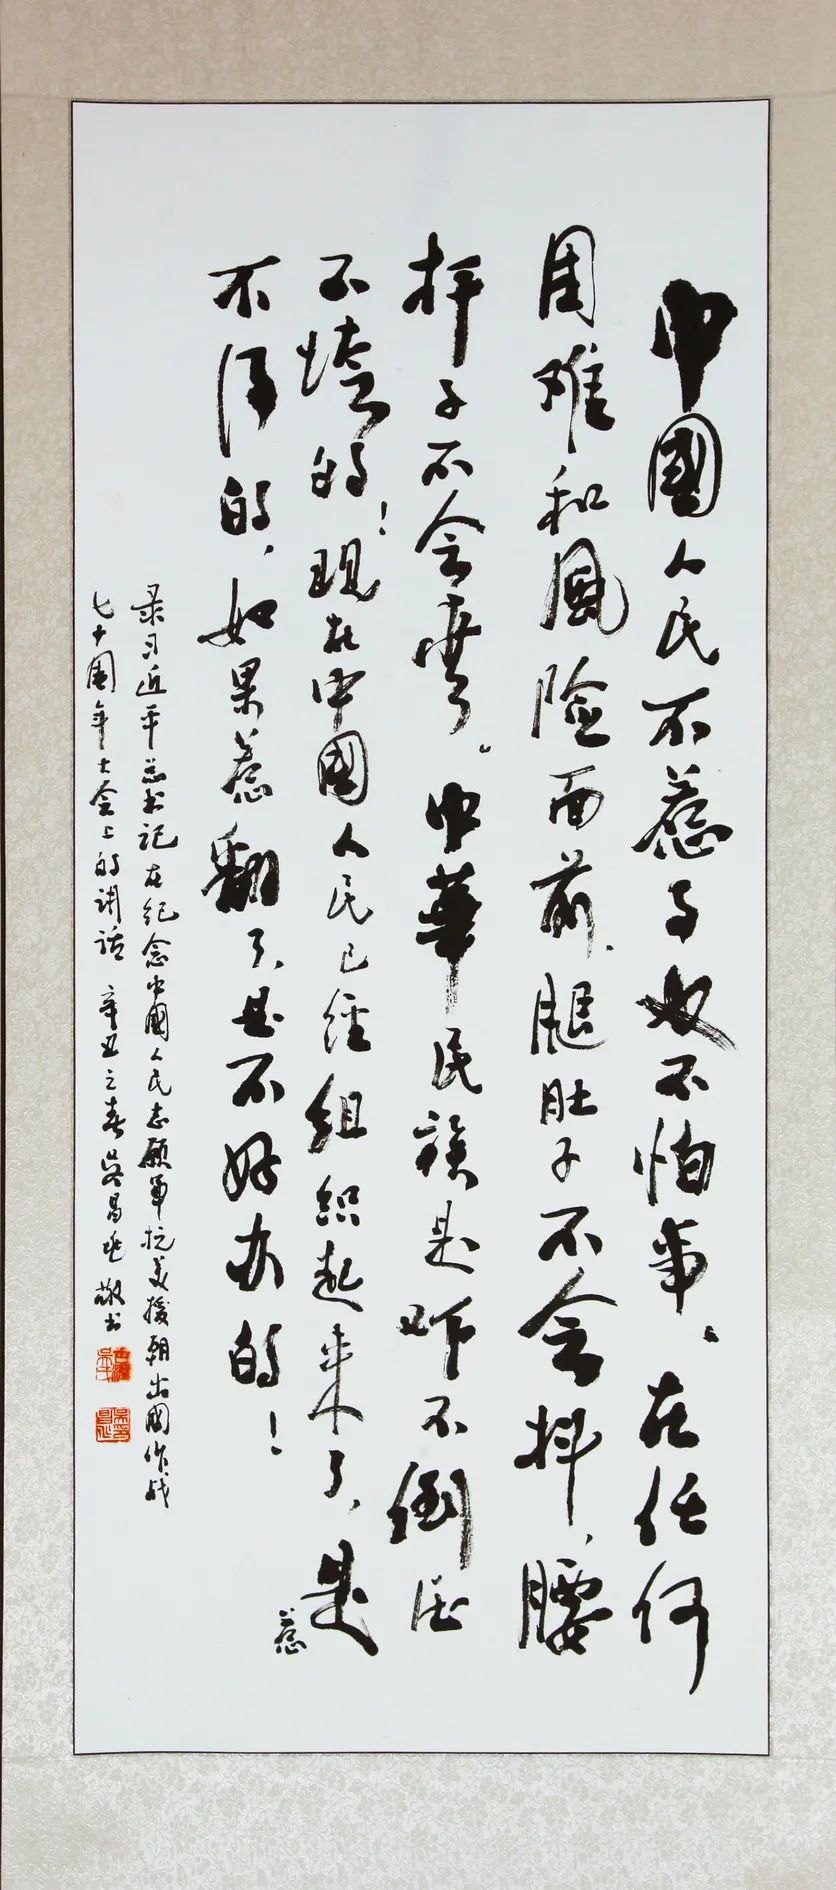 中國人民不惹事也不怕事、在任何
困难和風险面前、腿肚子不会抖、腰
杆子不会弯。中華民族是吓不倒压
不垮的！現在中國人民已经组织起来了、是
惹
不得的、如果惹翻了、是不好办的！
录习近平总书记在纪念中國人民志愿军抗美援朝出國作战
七十周年大会上的讲话 辛丑之春吴昌 敬书